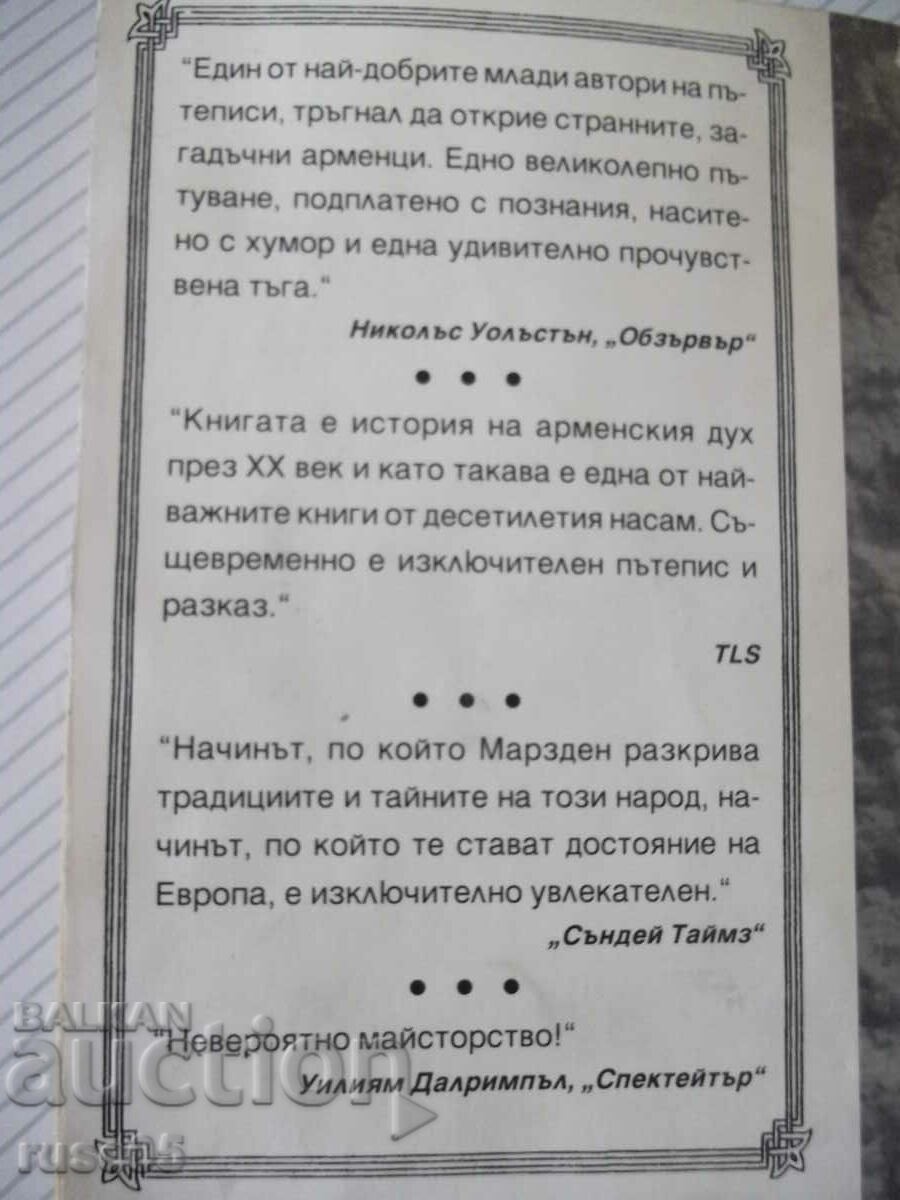 “Един от най-добрите млади автори на пъ-
теписи, тръгнал да открие странните, за-
гадъчни арменци. Едно великолепно пъ-
туване, подплатено с познания, насите-
но с хумор и една удивително прочувст-
вена тъга.“
Николъс Уолъстън, „Обзървър“
● ● ●
“Книгата е история на арменския дух
през XX век и като такава е една от най-
важните книги от десетилетия насам. Съ-
щевременно е изключителен пътепис и
разказ.“
TLS
● ● ●
“Начинът, по който Марзден разкрива
традициите и тайните на този народ, на-
чинът, по който те стават достояние на
Европа, е изключително увлекателен.“
„Съндей Таймз“
● ● ●
“Невероятно майсторство!“
Уилиям Далримпъл, „Спектейтър“
BALKAN
auction